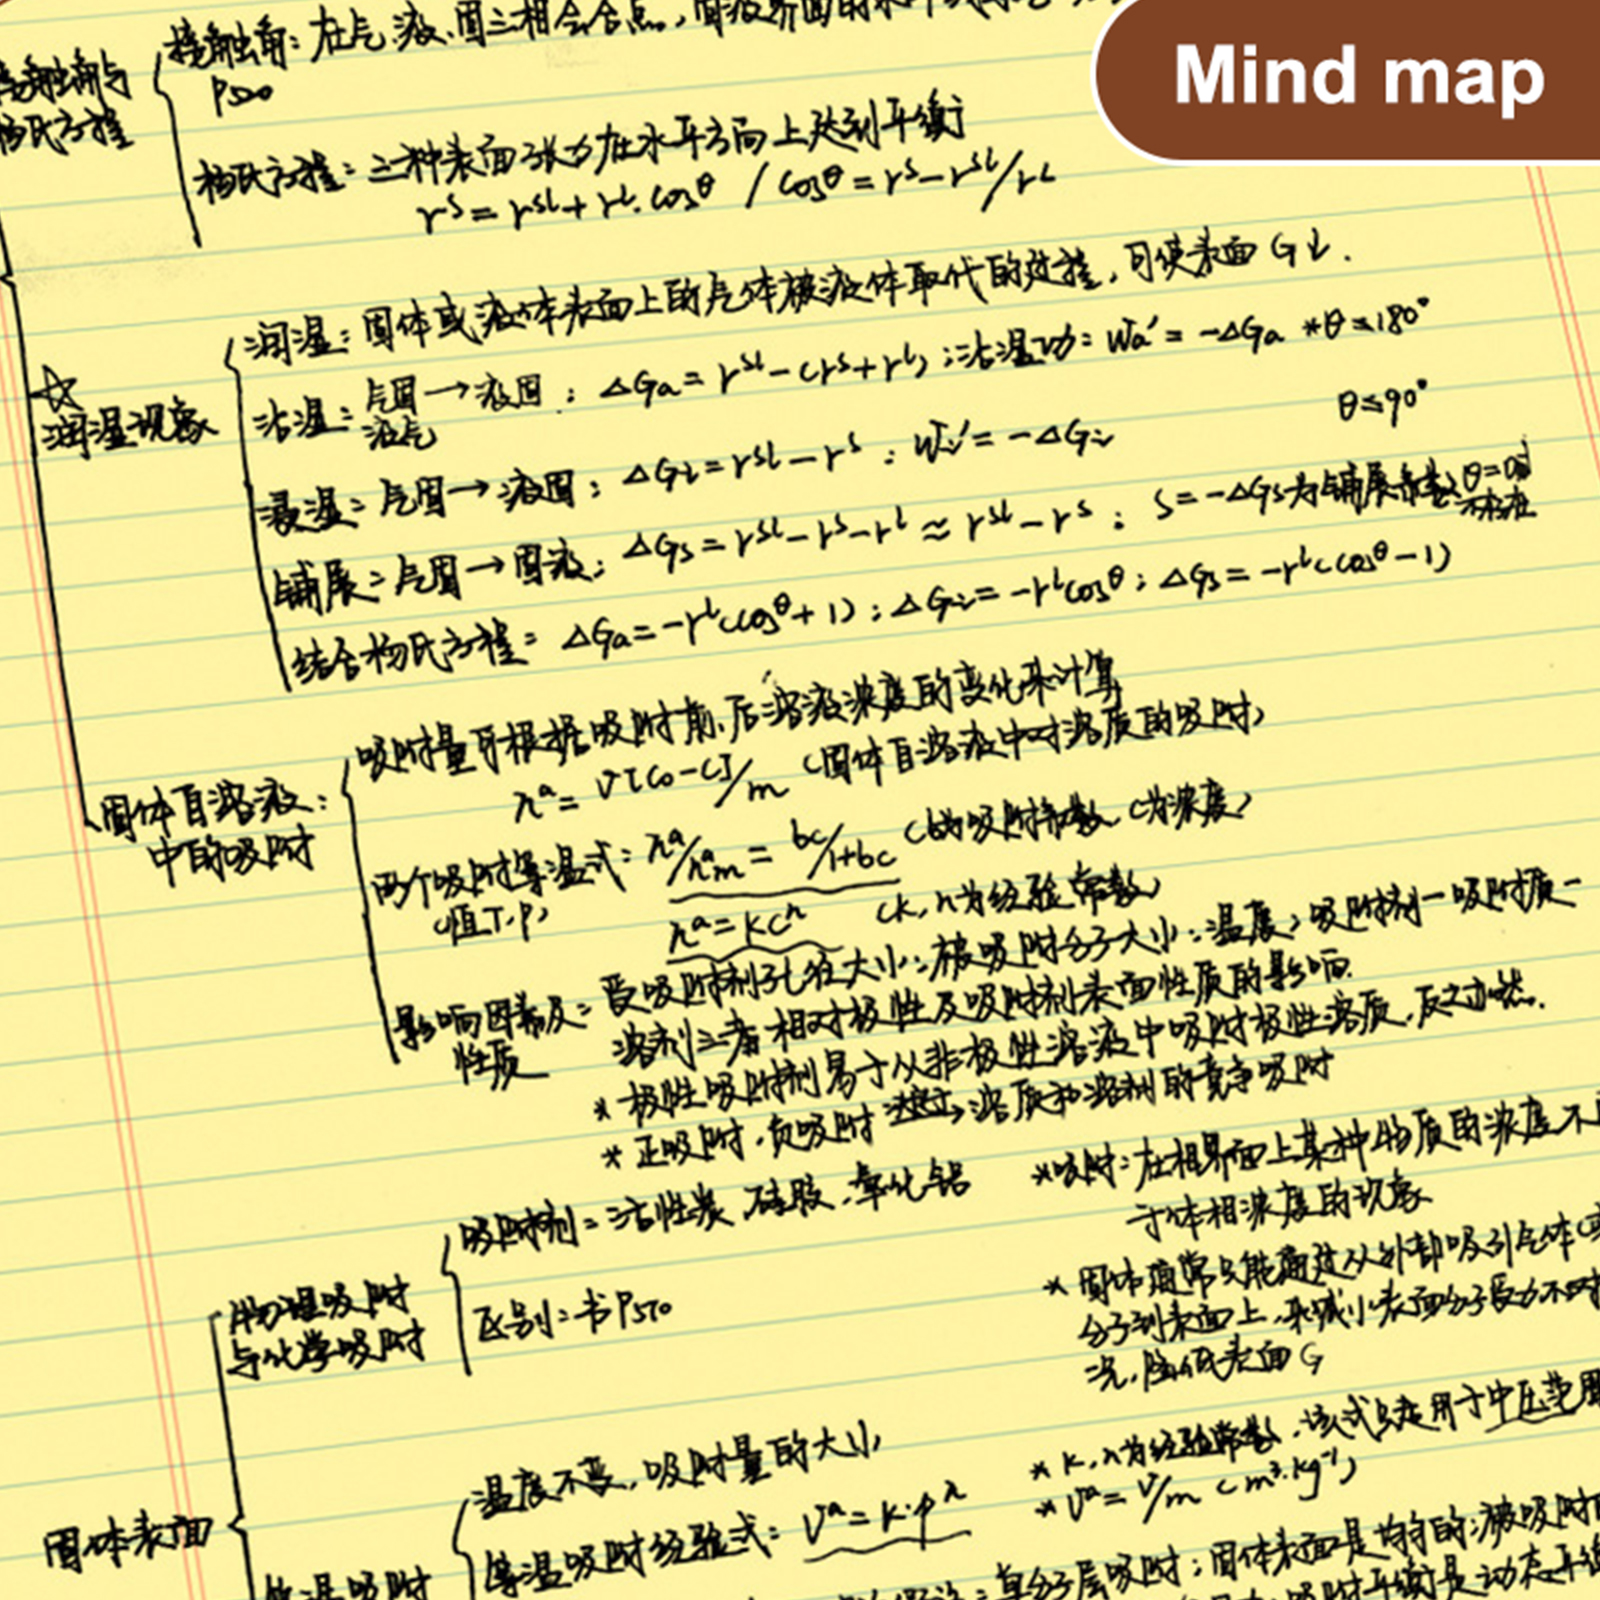 Mind map
接触角与
杨氏方程
接触角：在气、液、固三相会合点，固液界面的水平
P520
杨氏方程：三种表面张力在水平方向上达到平衡
rˢ = rˢᴸ + rᴸ·cosθ / cosθ = rˢ - rˢᴸ/rᴸ
☆
润湿现象
润湿：固体或液体表面上的气体被液体取代的过程，可使表面G↓.
沾湿：气固→液固：ΔGa = rˢᴸ - (rˢ + rᴸ)；沾湿功：Wa' = -ΔGa *θ≤180°
液气
θ≤90°
浸湿：气固→液固：ΔGi = rˢᴸ - rˢ：Wi' = -ΔGi
铺展：气固→固液：ΔGs = rˢᴸ - rˢ - rᴸ ≈ rˢᴸ - rˢ：S = -ΔGs为铺展系数 θ=0或
不存在
结合杨氏方程：ΔGa = -rᴸ(cosθ+1)：ΔGi = -rᴸcosθ：ΔGs = -rᴸ(cosθ-1)
固体自溶液：
中的吸附
吸附量可根据吸附前、后溶液浓度的变化来计算
nᵃ = V[C₀-C]/m (固体自溶液中对溶质的吸附)
两个吸附等温式：nᵃ/nᵃm = bc/1+bc (b为吸附系数 C为浓度)
(恒T.P)
nᵃ = kcⁿ (k, n为经验常数)
影响因素及：受吸附剂孔径大小：被吸附分子大小：温度：吸附剂-吸附质-
性质
溶剂三者相对极性及吸附剂表面性质的影响
* 极性吸附剂易于从非极性溶液中吸附极性溶质，反之亦然.
* 正吸附，负吸附 溶质和溶剂的竞争吸附
物理吸附
与化学吸附
吸附剂：活性炭，硅胶，氧化铝
区别：书P570
*吸附：在相界面上某种物质的浓度不
于体相浓度的现象
* 固体通常只能通过从外部吸引气体
分子到表面上，来减小表面分子受力不对
况，降低表面G
固体表面
温度不变，吸附量的大小
等温吸附经验式：Vᵃ = k·pⁿ
* k, n为经验常数，该式只适用于中压范围
* Vᵃ = V/m (m³·kg⁻¹)
等温吸附
：单分子层吸附：固体表面是均匀的：被吸附
吸附平衡是动态平衡